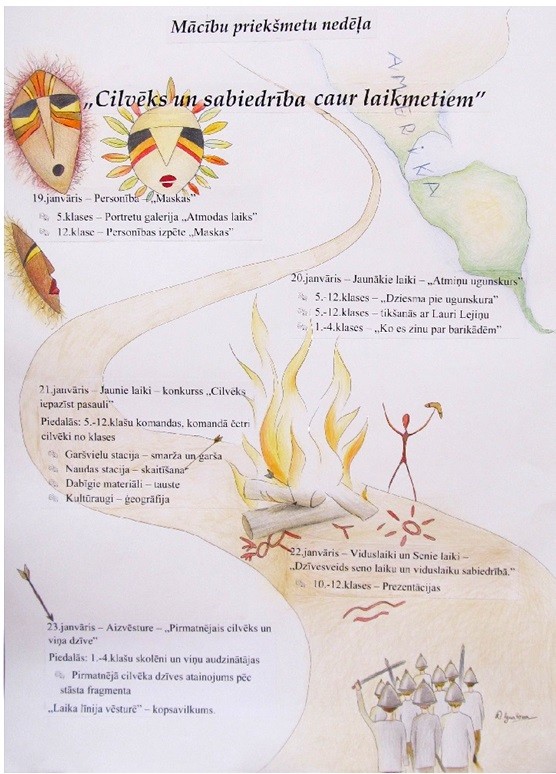 Mācību priekšmetu nedēļa
„Cilvēks un sabiedrība caur laikmetiem”
AMERIKA
19.janvāris – Personība – „Maskas”
5.klases – Portretu galerija „Atmodas laiks”
12.klase – Personības izpēte „Maskas”
20.janvāris – Jaunākie laiki – „Atmiņu ugunskurs”
5.-12.klases – „Dziesma pie ugunskura”
5.-12.klases – tikšanās ar Lauri Lejiņu
1.-4.klases – „Ko es zinu par barikādēm”
21.janvāris – Jaunie laiki – konkurss „Cilvēks
iepazīst pasauli”
Piedalās: 5.-12.klašu komandas, komandā četri
cilvēki no klases
Garšvielu stacija – smarža un garša
Naudas stacija – skaitīšana
Dabīgie materiāli – tauste
Kultūraugi – ģeogrāfija
22.janvāris – Viduslaiki un Senie laiki –
„Dzīvesveids seno laiku un viduslaiku sabiedrībā.”
10.-12.klases – Prezentācijas
23.janvāris – Aizvēsture – „Pirmatnējais cilvēks un
viņa dzīve”
Piedalās: 1.-4.klašu skolēni un viņu audzinātājas
Pirmatnējā cilvēka dzīves atainojums pēc
stāsta fragmenta
„Laika līnija vēsturē” – kopsavilkums.